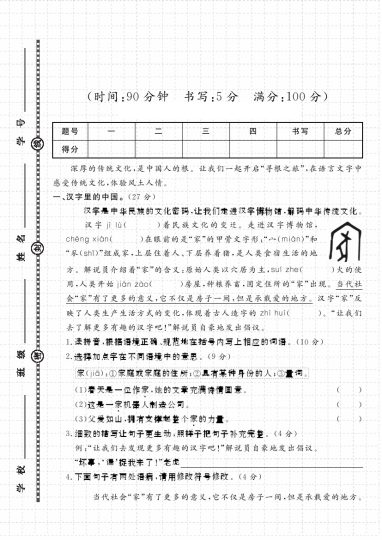 （时间:90分钟　书写:5分　满分:100分）
题号 一 二 三 四 书写 总分
得分
深厚的传统文化,是中国人的根。让我们一起开启“寻根之旅”,在语言文字中
感受传统文化,体验风土人情。
一、汉字里的中国。(27分)
汉字是中华民族的文化密码,让我们走进汉字博物馆,解码中华传统文化。
汉字 jì lù(　　)着民族文化的变迁。走进汉字博物馆,
chéng xiàn(　　)在眼前的是“家”的甲骨文字形:“宀(mián)”和
“豕(shǐ)”组成家,上层住着人,下层养着猪,是人类舍宿生活的地
方。解说员介绍着“家”的含义:原始人类以穴居为主,suí zhe(　　)火的使
用,人类开始 jiàn zào(　　)房屋,种粮养畜,固定住所的“家”出现。当代社
会“家”有了更多的意义,它不仅是房子一间,但是承载爱的地方。汉字“家”反
映了人类生产生活方式的变化,体现着古人造字的 zhì huì(　　)。“让我们
去了解更多有趣的汉字吧!”解说员自豪地发出倡议。
1.读拼音,根据语境正确、规范地在括号内写上相应的词语。(10分)
2.选择加点字在不同语境中的意思。(9分)
家(jiā):①家庭或家庭的住所;②具有某种身份的人;③量词。
(1)春天是一位作家,她的文章充满诗情画意。 (　　)
(2)这是一家机器人制造公司。 (　　)
(3)父爱如山,拥有支撑起整个家的力量。 (　　)
3.细致的描写让句子更生动,照样子把句子补充完整。(4分)
例:“让我们去发现更多有趣的汉字吧!”解说员自豪地发出倡议。
4.下面句子有两处语病,请用修改符号修改。(4分)
当代社会“家”有了更多的意义,它不仅是房子一间,但是承载爱的地方。
学号
姓名
班级
学校
线
封
密